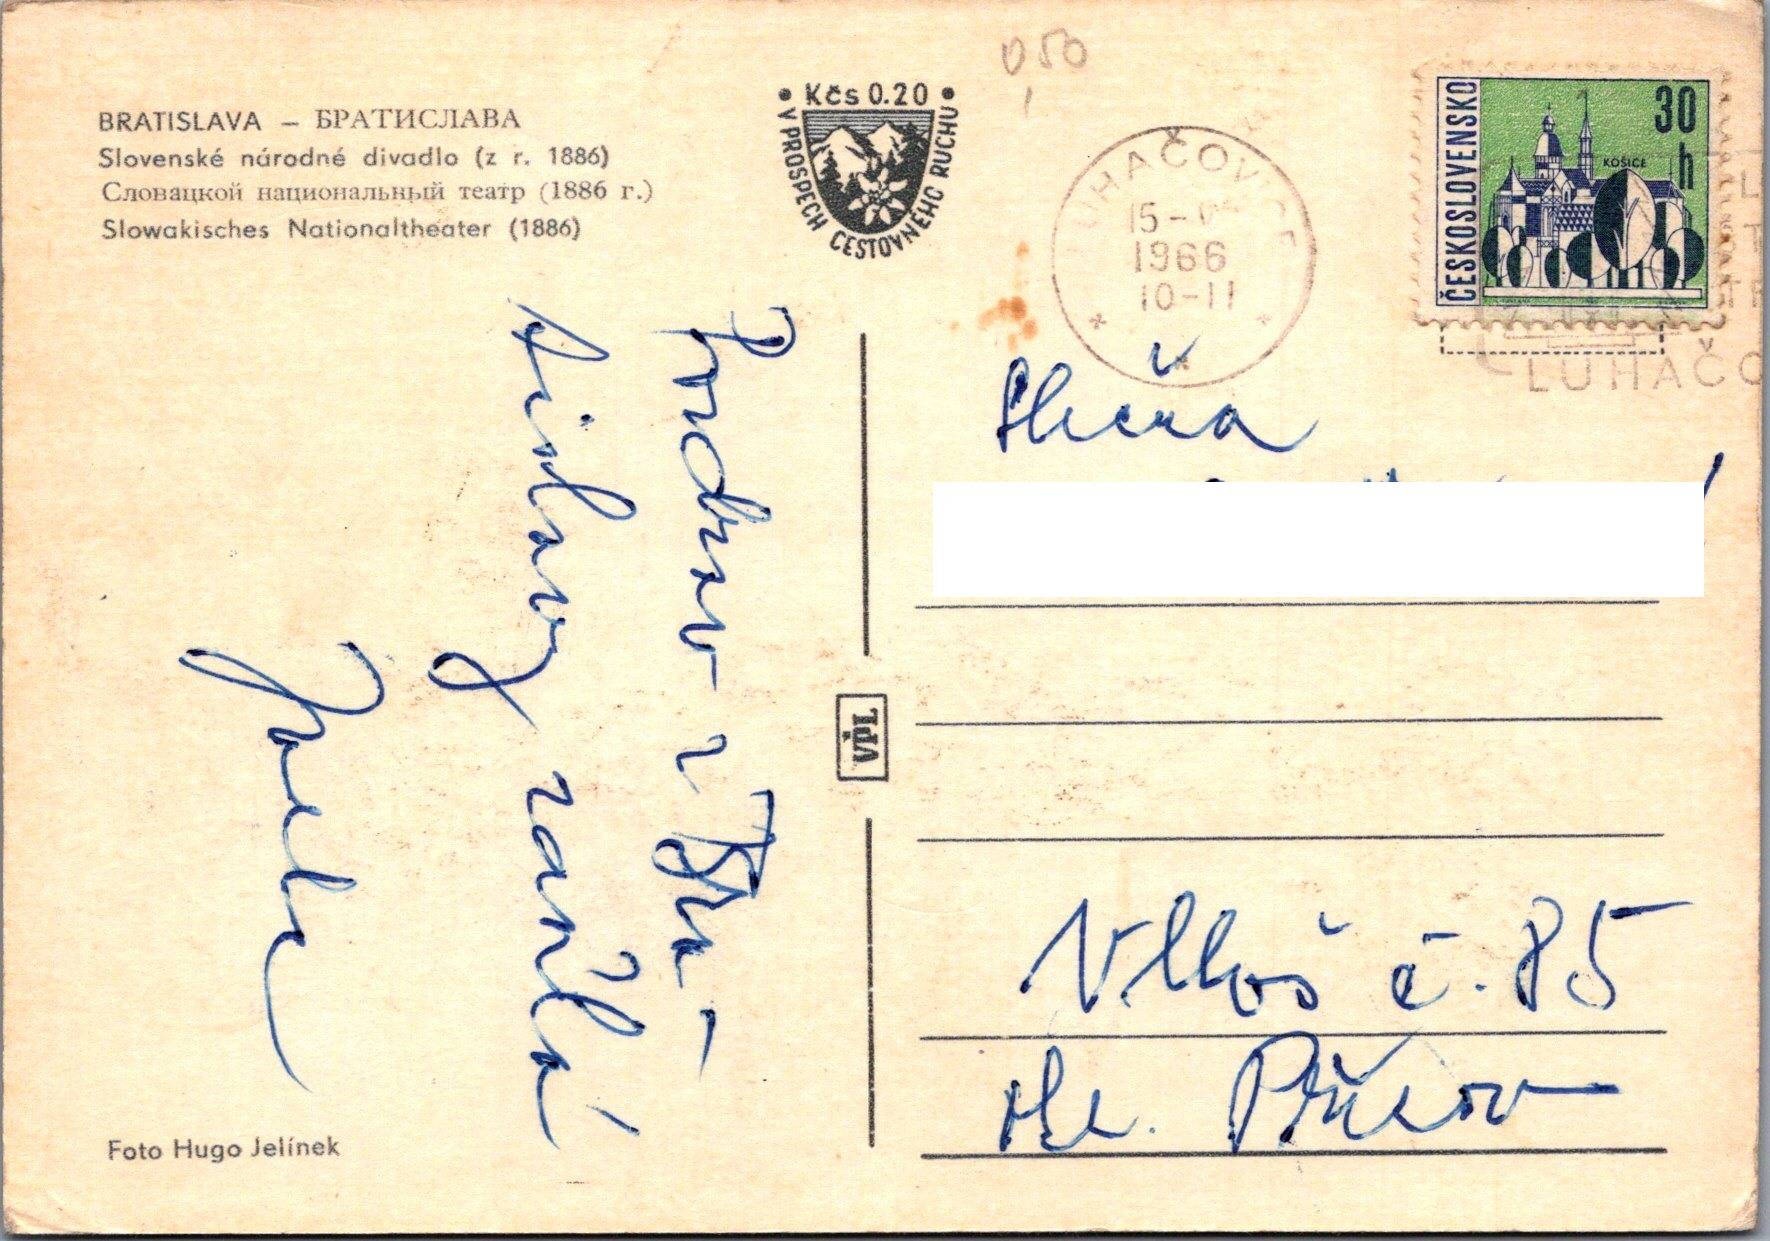 BRATISLAVA – БРАТИСЛАВА
Slovenské národné divadlo (z r. 1886)
Словацкой национальный театр (1886 г.)
Slowakisches Nationaltheater (1886)
• Kčs 0.20 •
V PROSPECH CESTOVNÉHO RUCHU
050
LUHAČOVICE
15-
1966
10-11
ČESKOSLOVENSKO
30
h
KOŠICE
LUHAČO
Slečna
Pozdrav z Bra-
tislavy zasílá
VPL
Vlkoš č. 85
p. Přerov
Foto Hugo Jelínek